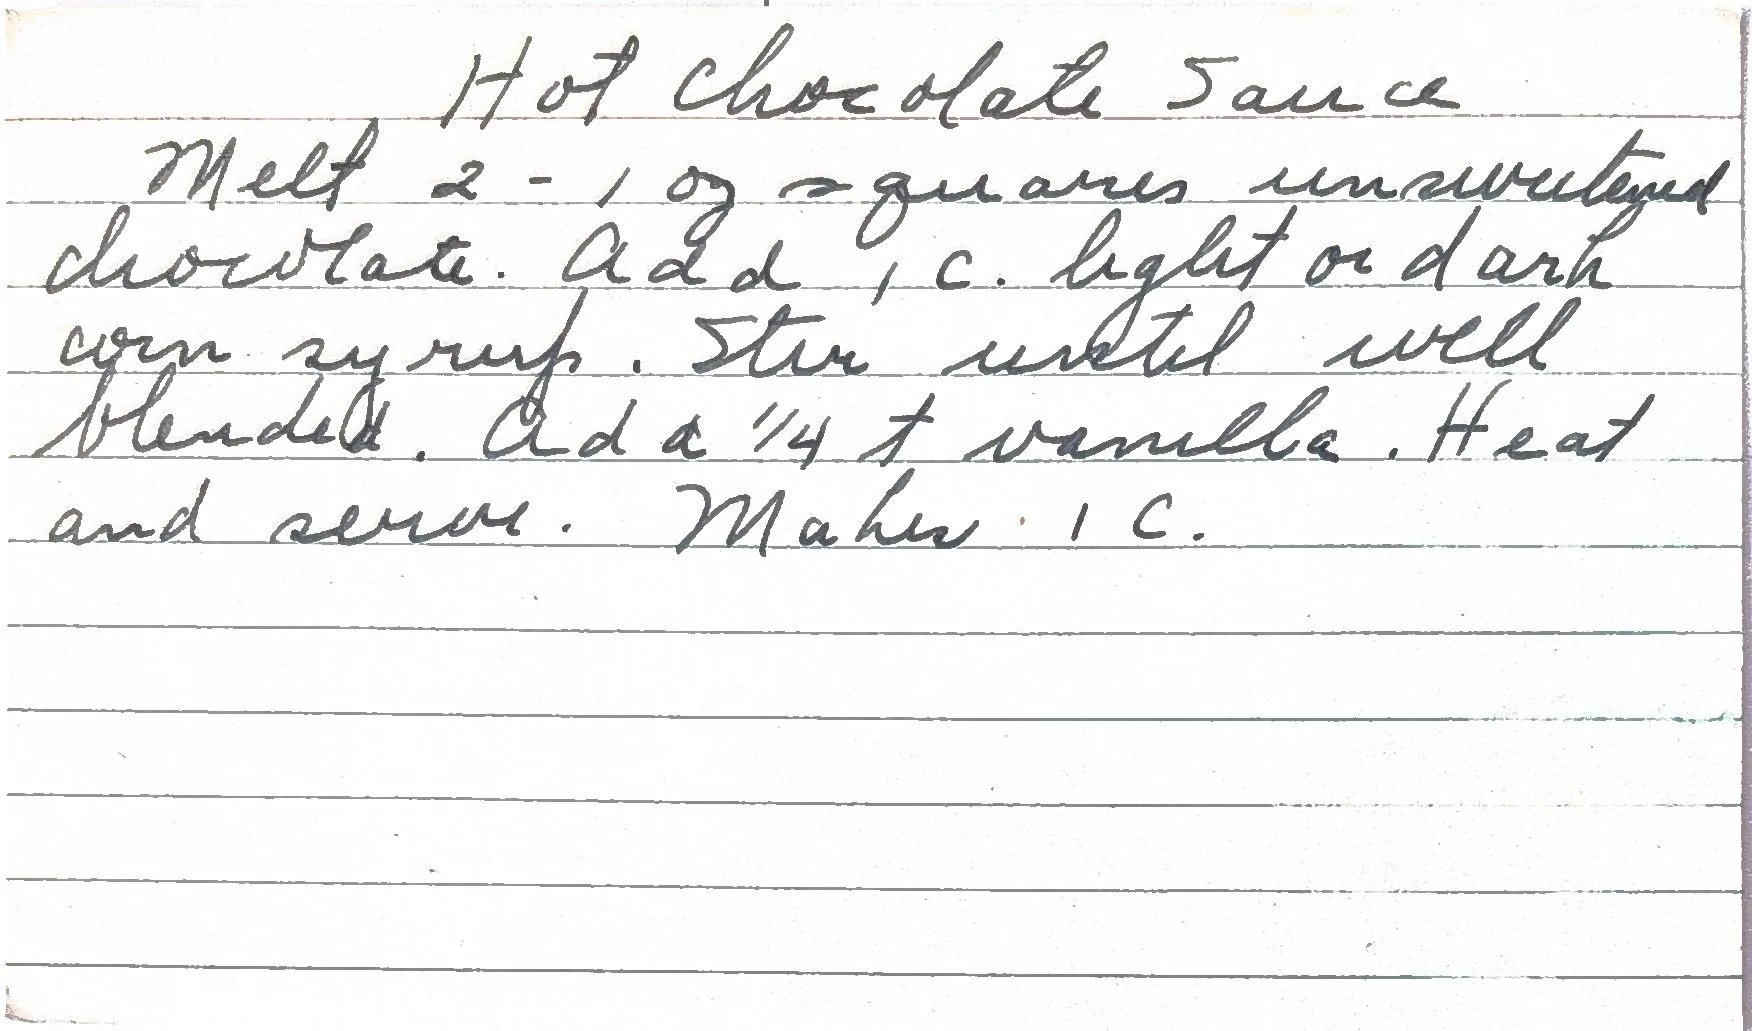 Hot Chocolate Sauce
Melt 2 - 1 oz squares unsweetened
chocolate. Add 1 c. light or dark
corn syrup. Stir until well
blended. Add 1/4 t vanilla. Heat
and serve. Makes 1 C.